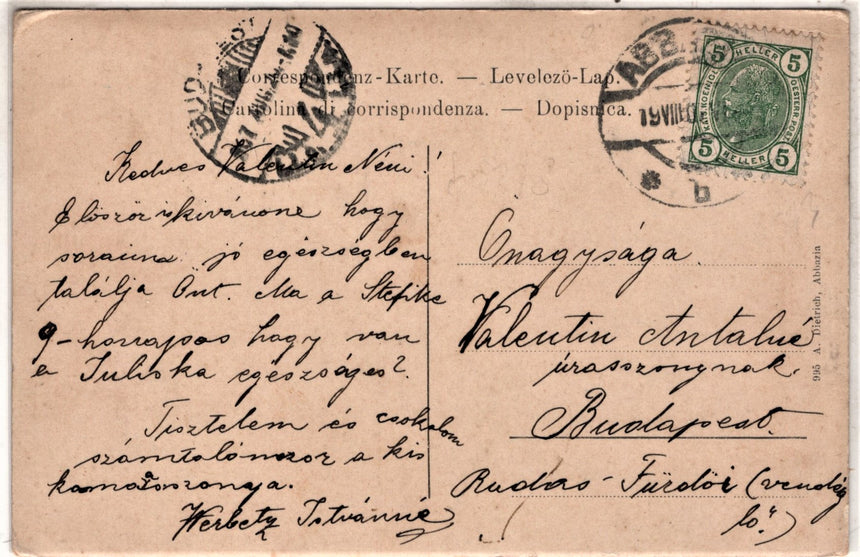 Correspondenz-Karte. — Levelező-Lap.
Cartolina di corrispondenza. — Dopisnica.
ABBAZ
19 VIII
b
5 HELLER 5
KAIS. KOENIGL.
OESTERR. POST
5 HELLER 5
BUDAPEST
Kedves Valentin Néni!
Először is kivánom hogy
soraim jó egészségben
találja Önt. Ma a Stefike
9-hónapos hogy van
a Juliska egészséges?
Tisztelem és csokolom
számtalonszor a kis
komaasszonya.
Herbetz Istvánné
Őnagysága
Valentin Antalné
úrasszonynak.
Budapest.
Rudas-Fürdői (vendég
lő")
995 A. Dietrich, Abbazia